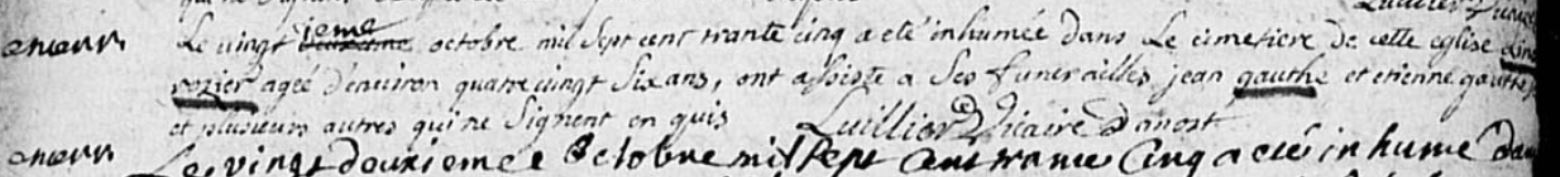 Luillier Vicaire
enterr. Le vingt ieme deuxieme octobre mil sept cent trante cinq a eté inhumée dans Le cimetiere De cette eglise
rozier ageé d'environ quatre vingt six ans, ont assisté a Ses funerailles jean gauthe et etienne gauthe
et plusieurs autres qui ne Signent en quis Luillier Vicaire D'anost
enterr. Le vingt deuxieme Octobre mil sept cent trante Cinq a eté inhumé dans